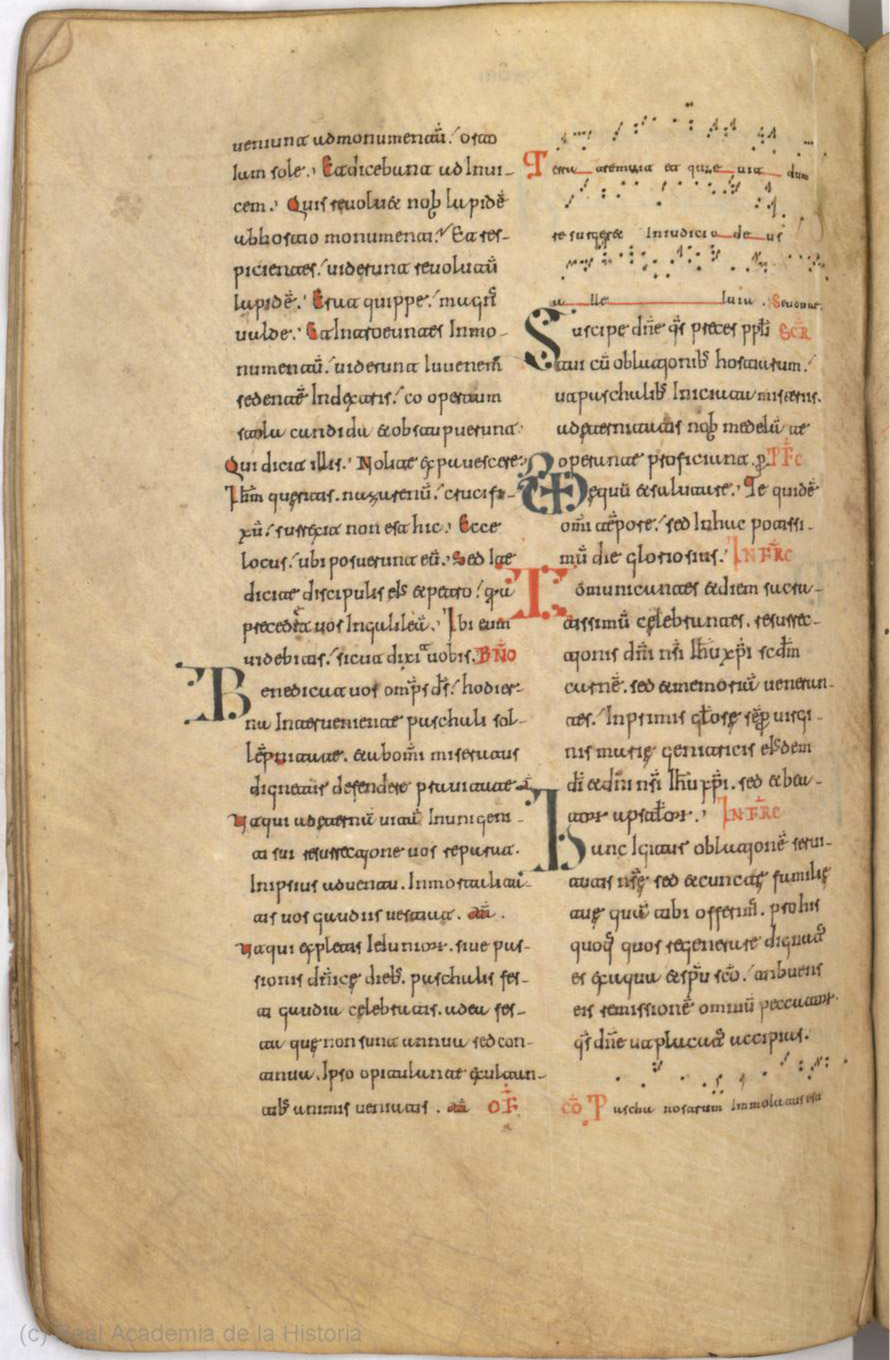 ueniunt ad monumentū. orto
Iam sole. Et dicebant ad Inui-
cem. Quis reuolu& nob̄ lapidē
ab hostio monumenti. Et res-
picientes. uiderunt reuolutū
lapidē. Erat quippe. magn̄
ualde. Et Introeuntes Inmo-
numentū. uiderunt Iuuenem̄
sedentē Indextris. coopertum
stola candida & obstupuerunt.
Qui dicit illis. Nolite expauescere.
Ihm̄ queritis. nazarenū. crucifi-
xū. surrexit non est hic. Ecce
locus. ubi posuerunt eū. Sed Ite
dicite discipulis eīs & petro. quia
precedet uos Ingalileā. Ibi eum
uidebitis. sicut dixit uobis. BÑO
Benedicat uos omp̄s ds̄. hodier-
na Interueniente paschali sol-
lēpnitate. & ab omī miseratus
dignetur defendere prauitate.
ut qui ad eternā uitā Inunigeni-
ti sui resurrectione uos reparat.
Inipsius aduentu. Inmortalitati-
tis uos gaudiis uestiat. am̄.
ut qui expletis Ieiuniorum. siue pas-
sionis dnīce dieb. paschalis fes-
ti gaudia celebratis. ad ea fes-
ta que non sunt annua sed con-
tinua. Ipso opitulante exultan-
tib animis ueniatis. am̄ OF̄
Terra tremuit et quieuit dum
resurger& Iniudicio deus
alleluia. Seuouae.
Suscipe dn̄e qs̄ preces ppl̄i SCR
tui cū oblationib hostiarum.
ut paschalib Iniciata misteriis.
ad eternitatis nob̄ medelā te
operante proficiant. p̄ PFC
equū & salutare. Te quidē
omī tēpore. sed Inhac potissi-
mū die gloriosius. INFRC
Communicantes & diem sacra-
tissimū celebrantes. resurrec-
tionis dnī nsī Ihū xp̄i scdm̄
carnē. sed & memoriā ueneran-
tes. Inprimis gl̄ose sēp uirgi-
nis marie genitricis eīsdem
dī & dnī nsī Ihū xp̄i. sed & bea-
torum apsl̄orum. INFRC
Hanc Igitur oblationē serui-
tutis nr̄e sed & cuncte familie
tue quā tibi offerim̄. pro his
quoq quos regenerare dignat̄
es ex aqua & sp̄u scō. tribuens
eis remissionē omniū peccatorum.
qs̄ dn̄e ut placat̄ accipias.
CŌ Pascha nostrum Immolatus est
(c) Real Academia de la Historia